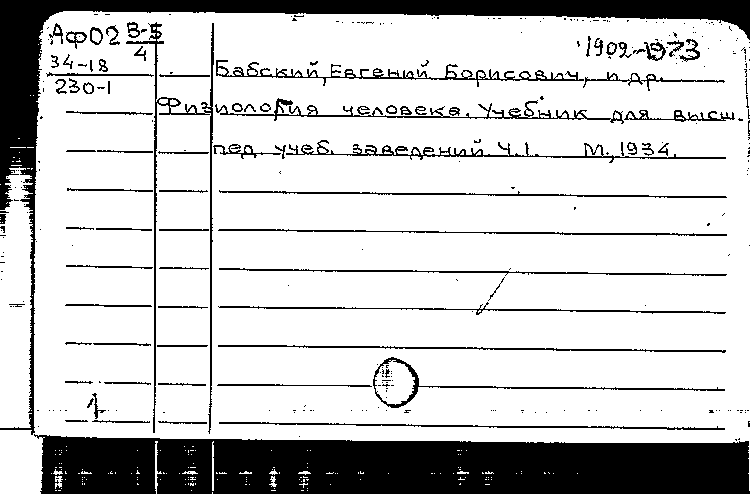 АФ02 В-5
4
1902-1973
34-18
230-1
Бабский, Евгений Борисович, и др.
Физиология человека. Учебник для высш.
пед. учеб. заведений. Ч.1. М., 1934.
1